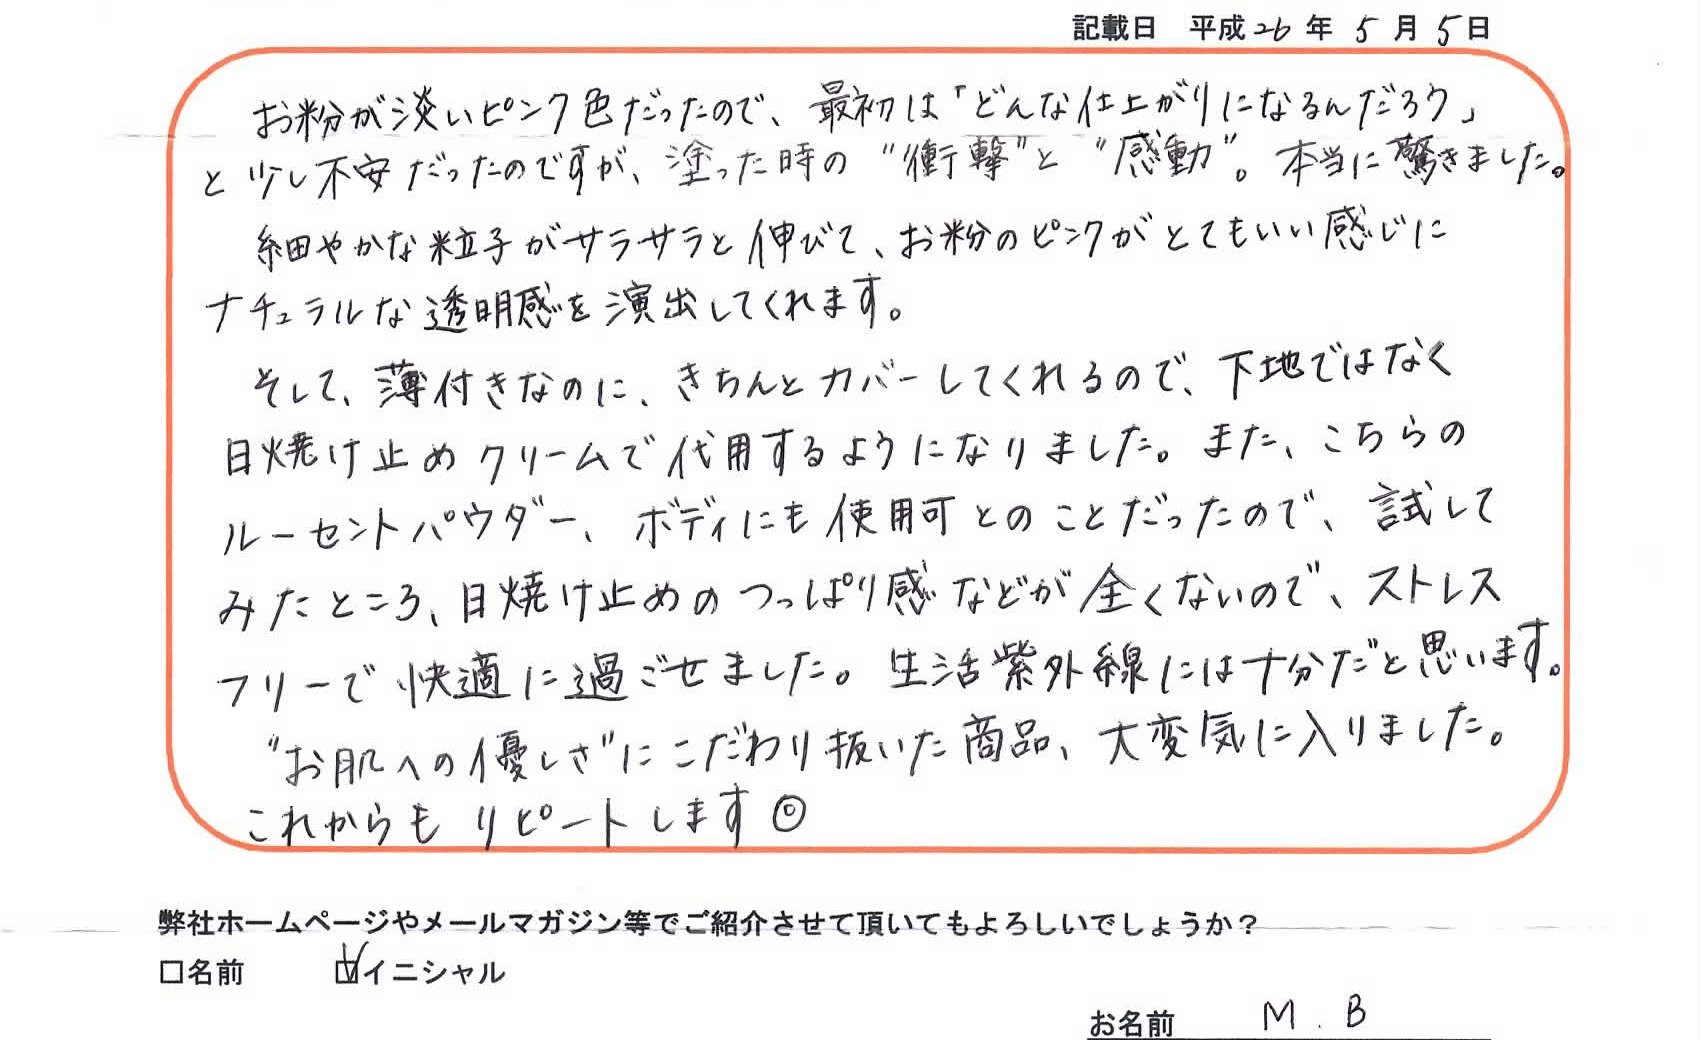 記載日 平成26年5月5日
お粉が淡いピンク色だったので、最初は「どんな仕上がりになるんだろう」
と少し不安だったのですが、塗った時の"衝撃"と"感動"。本当に驚きました。
細やかな粒子がサラサラと伸びて、お粉のピンクがとてもいい感じに
ナチュラルな透明感を演出してくれます。
そして、薄付きなのに、きちんとカバーしてくれるので、下地ではなく
日焼け止めクリームで代用するようになりました。また、こちらの
ルーセントパウダー、ボディにも使用可とのことだったので、試して
みたところ、日焼け止めのつっぱり感などが全くないので、ストレス
フリーで快適に過ごせました。生活紫外線には十分だと思います。
"お肌への優しさ"にこだわり抜いた商品、大変気に入りました。
これからもリピートします◎
弊社ホームページやメールマガジン等でご紹介させて頂いてもよろしいでしょうか？
□名前 ☑イニシャル
お名前 M.B